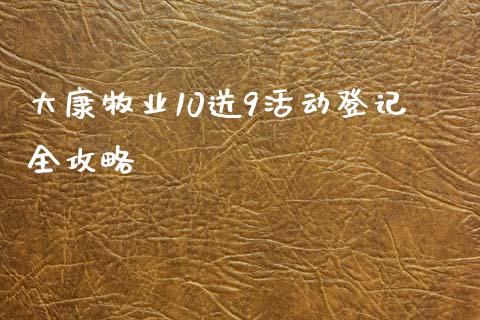 大康牧业10送9活动登记
全攻略